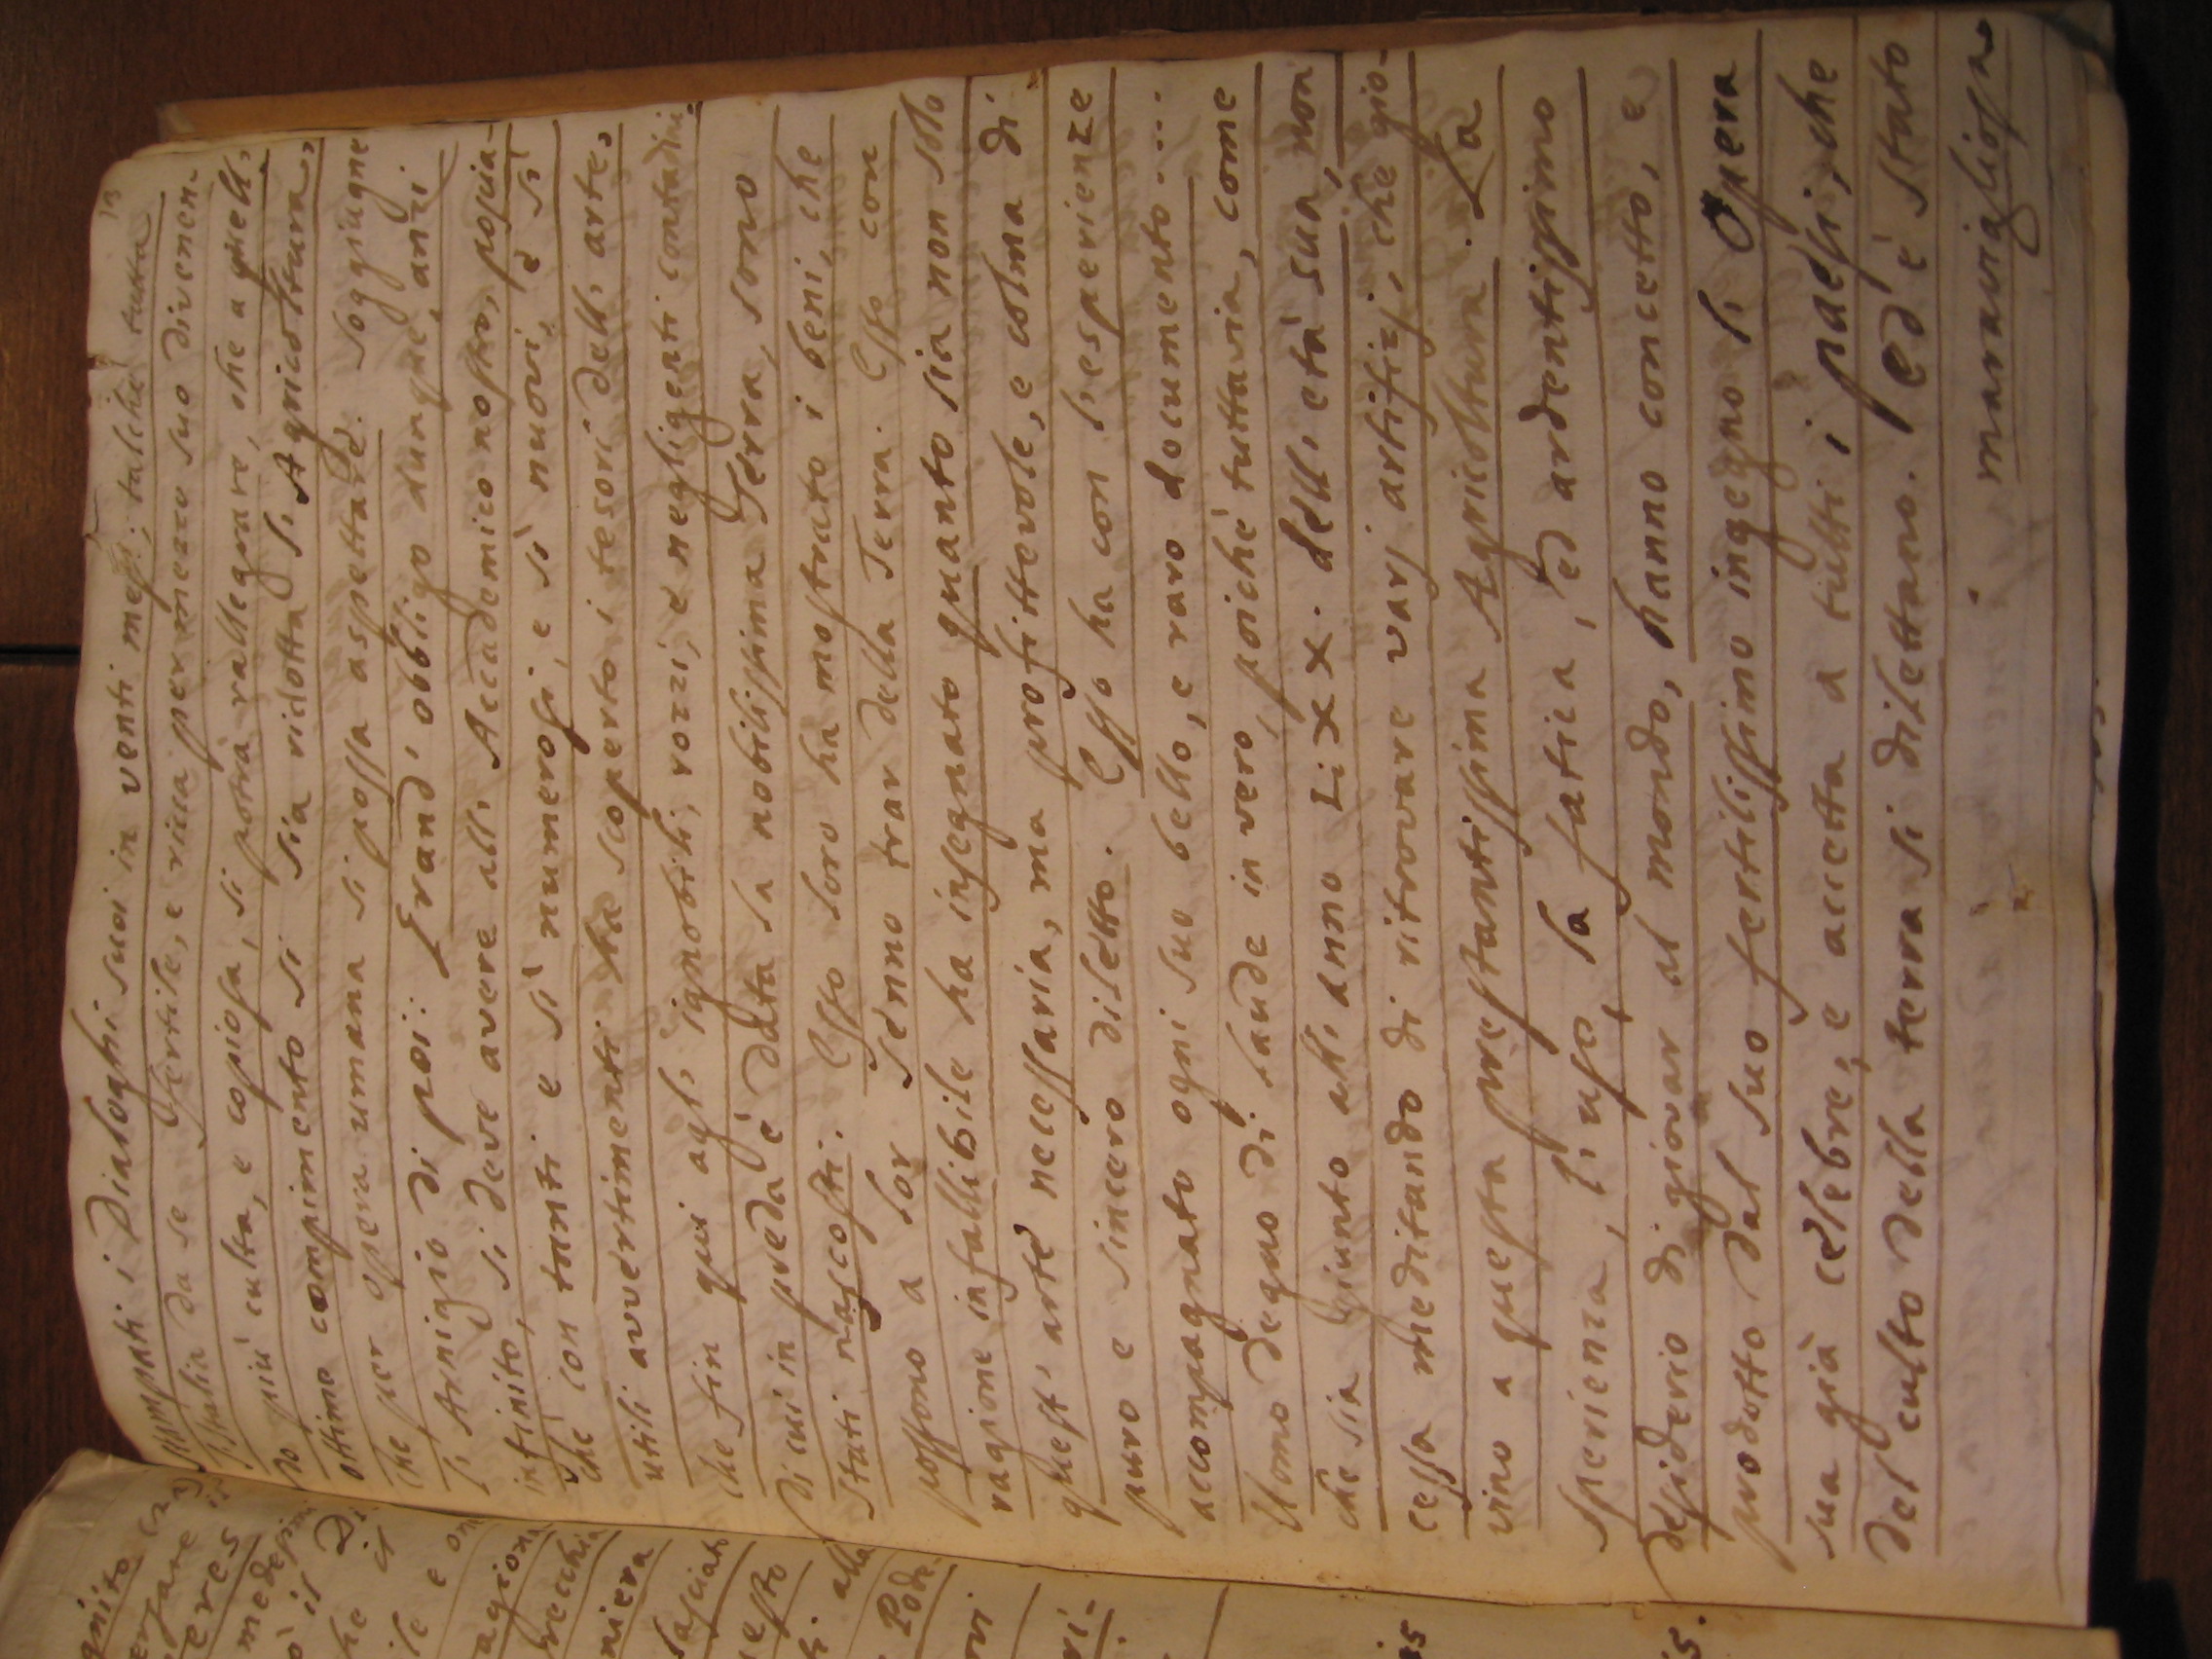 13
stampati i Dialoghi suoi in venti mesi; talchè tutta
l'Italia da se fertile, e ricca per mezzo suo divenen-
do più culta, e copiosa, si potrà rallegrare, che a quell'
ottimo compimento si sia ridotta l'Agricoltura,
che per opera umana si possa aspettare. Soggiugne
l'Arnigio di poi: Grand'obbligo dunque, anzi
infinito, si deve avere all'Accademico nostro, poscia-
chè con tanti e sì numerosi, e sì nuovi, e sì
utili avvertimenti ha scoperto i tesori dell'arte,
che fin qui agl'ignobili, rozzi, e negligenti contadini
di cui in preda è data la nobilissima Terra, sono
stati nascosti. Esso loro ha mostrato i beni, che
possono a lor senno trar della Terra. Esso con
ragione infallibile ha insegnato quanto sia non solo
quest'arte necessaria, ma profittevole, e colma di
puro e sincero diletto. Esso ha con l'esperienze
accompagnato ogni suo bello, e raro documento....
Uomo degno di laude in vero, poichè tuttavia, come
che sia giunto all'anno LXX. dell'età sua, non
cessa meditando di ritrovare varj artifizj, che gio-
vino a questa prestantissima Agricoltura. La
sperienza, l'uso, la fatica, ed ardentissimo
desiderio di giovar al mondo, hanno concetto, e
prodotto dal suo fertilissimo ingegno l'Opera
sua già celebre, e accetta a tutti i paesi, che
del culto della terra si dilettano. Ed è stato
maravigliosa